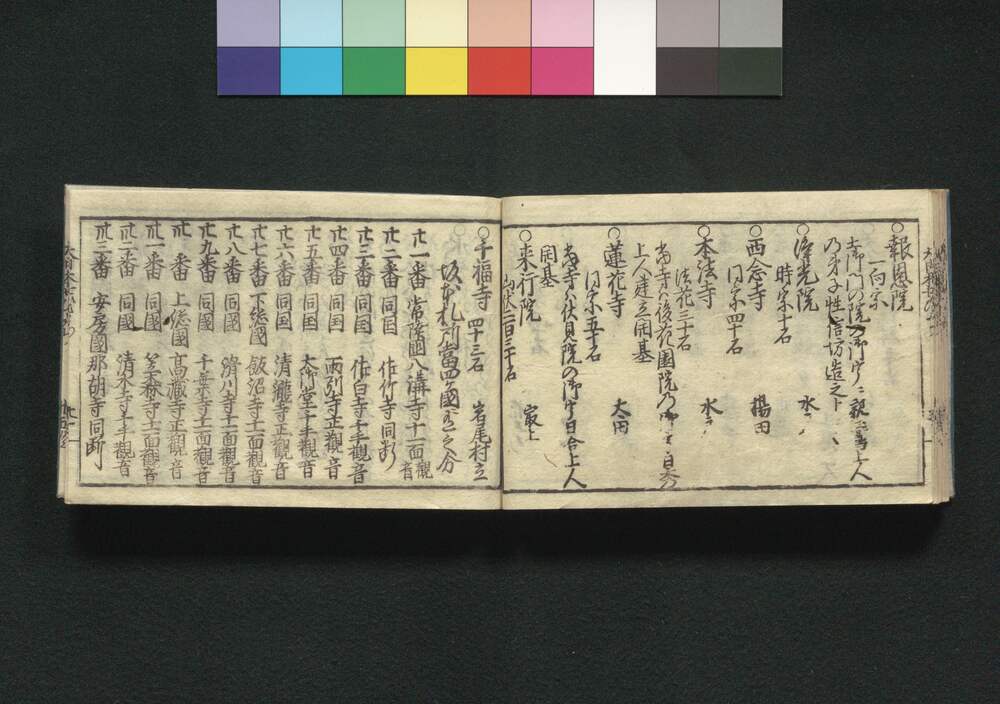 ○報恩院
一向宗
土御門の院の御宇ニ親鸞上人
の弟子性信坊造之
○浄光院 水
時宗十石
○西念寺 揚田
同宗四十石
○本法寺 水
法花三十石
当寺ハ後花園院の御宇日秀
上人建之開基
○蓮花寺 太田
同宗五十石
当寺ハ伏見院の御宇日合上人
開基
○来行院 最上
山伏二百三十石
○千福寺 四十三石 岩尾村立
坂東札所當四ヶ國之分
廿一番 常陸國 八溝寺十一面觀音
廿二番 同国 作竹寺同断
廿三番 同国 作白寺千手觀音
廿四番 同国 雨引寺正觀音
廿五番 同国 大御堂千手觀音
廿六番 同国 清瀧寺正觀音
廿七番 下総國 飯沼寺十一面觀音
廿八番 同國 滑川寺十一面觀音
廿九番 同國 千葉寺十一面觀音
卅 上総國 高藏寺正觀音
卅一番 同國 笠森寺十一面觀音
卅二番 同國 清水寺千手觀音
卅三番 安房國那胡寺同断